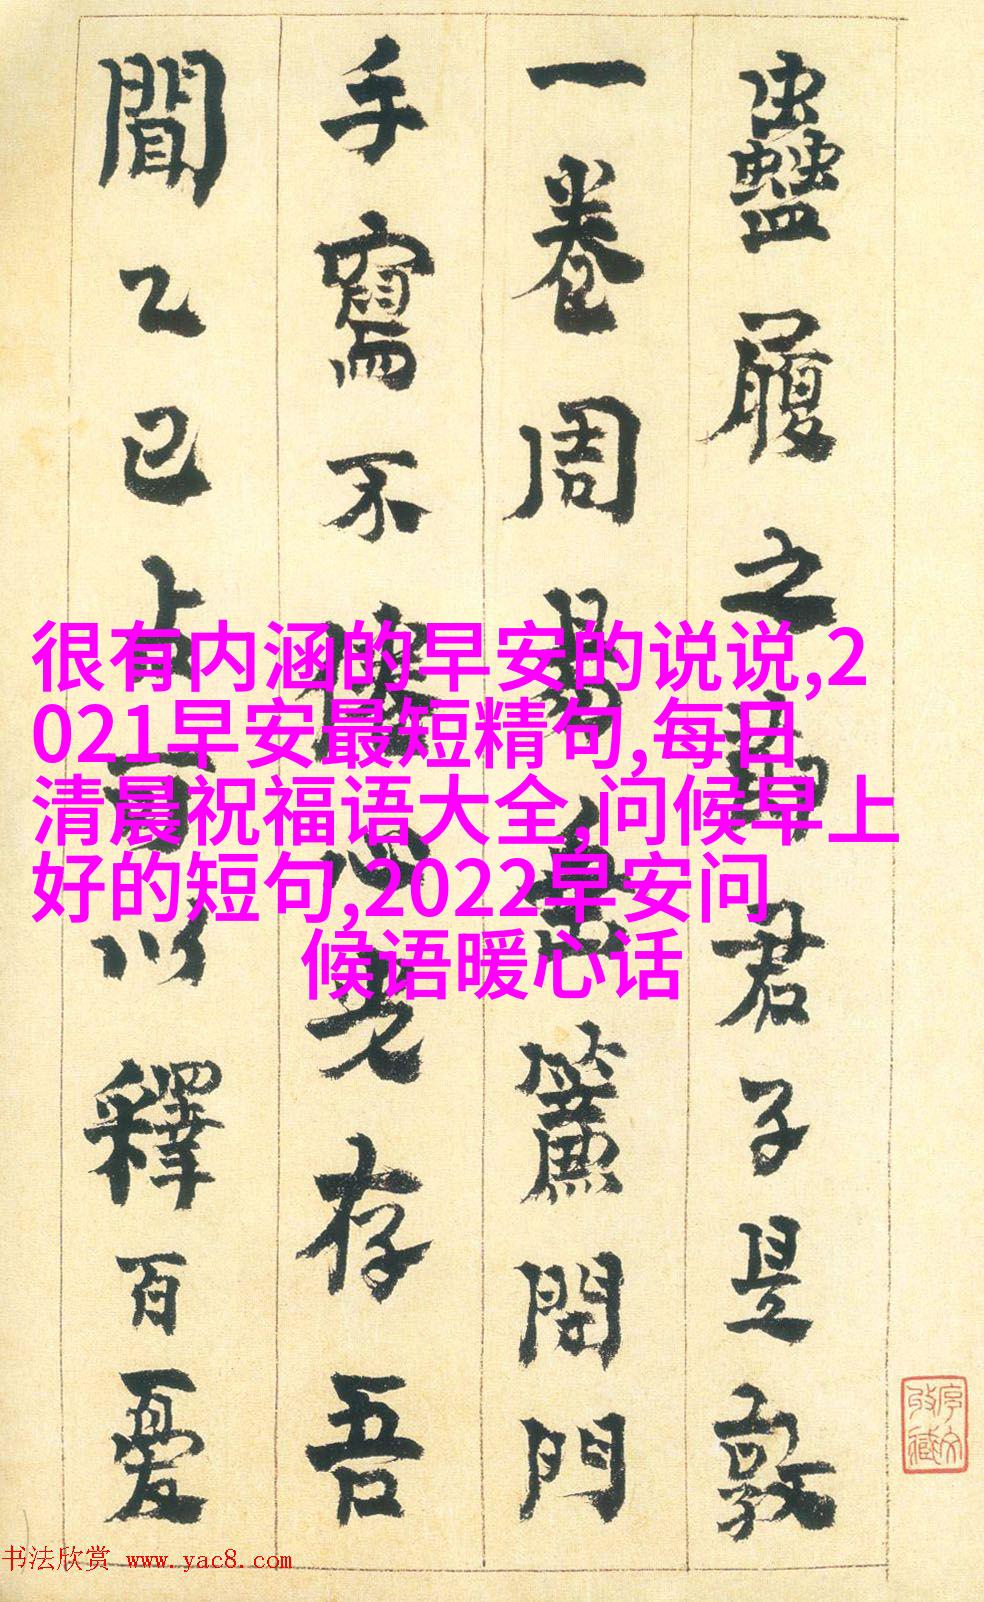 蠱履之君子是敦
一卷周易垂簾閉門
手寫不心存吾
聞乙巳占可以釋百憂
很有内涵的早安的说说,2
021早安最短精句,每日
清晨祝福语大全,问候早上
好的短句,2022早安问
候语暖心话
书法欣赏 www.yac8.com